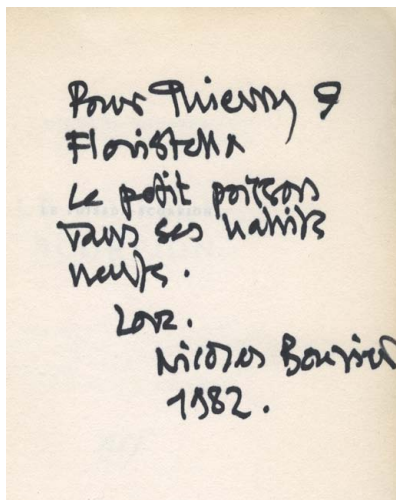 Pour Thierry &
Floristella
Le petit poisson
dans ses habits
neufs.
Love.
Nicolas Bouvier
1982.